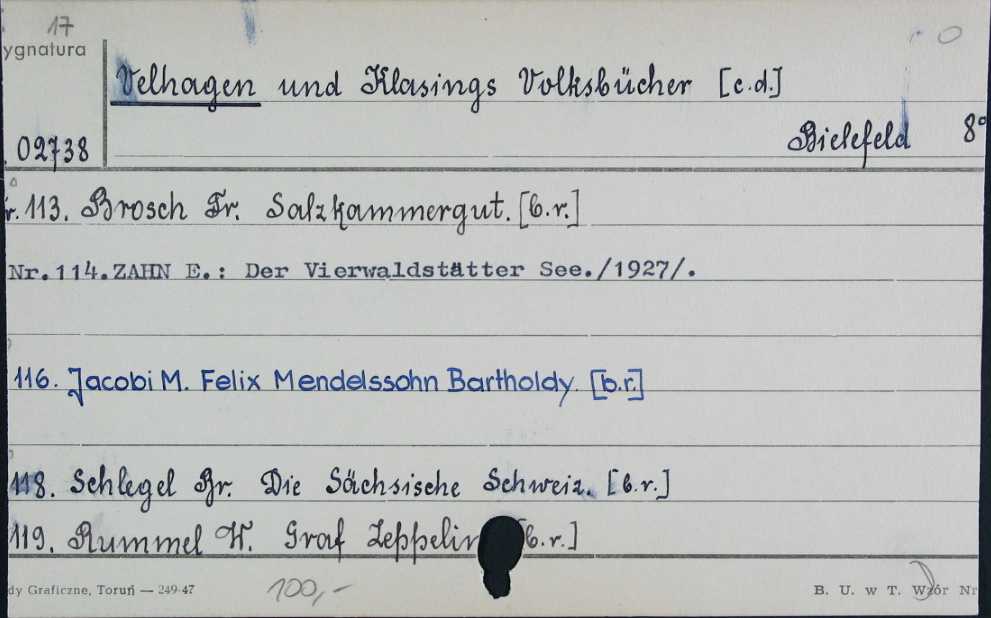 17
ygnatura
Velhagen und Klasings Volksbücher [c.d.]
Bielefeld 8°
02738
r. 113. Brosch Fr. Salzkammergut. [b.r.]
Nr.114.ZAHN E.: Der Vierwaldstätter See./1927/.
116. Jacobi M. Felix Mendelssohn Bartholdy. [b.r.]
118. Schlegel Br. Die Sächsische Schweiz. [b.r.]
119. Rummel W. Graf Zeppelin [b.r.]
dy Graficzne, Toruń — 249-47
100,-
B. U. w T. Wzór Nr